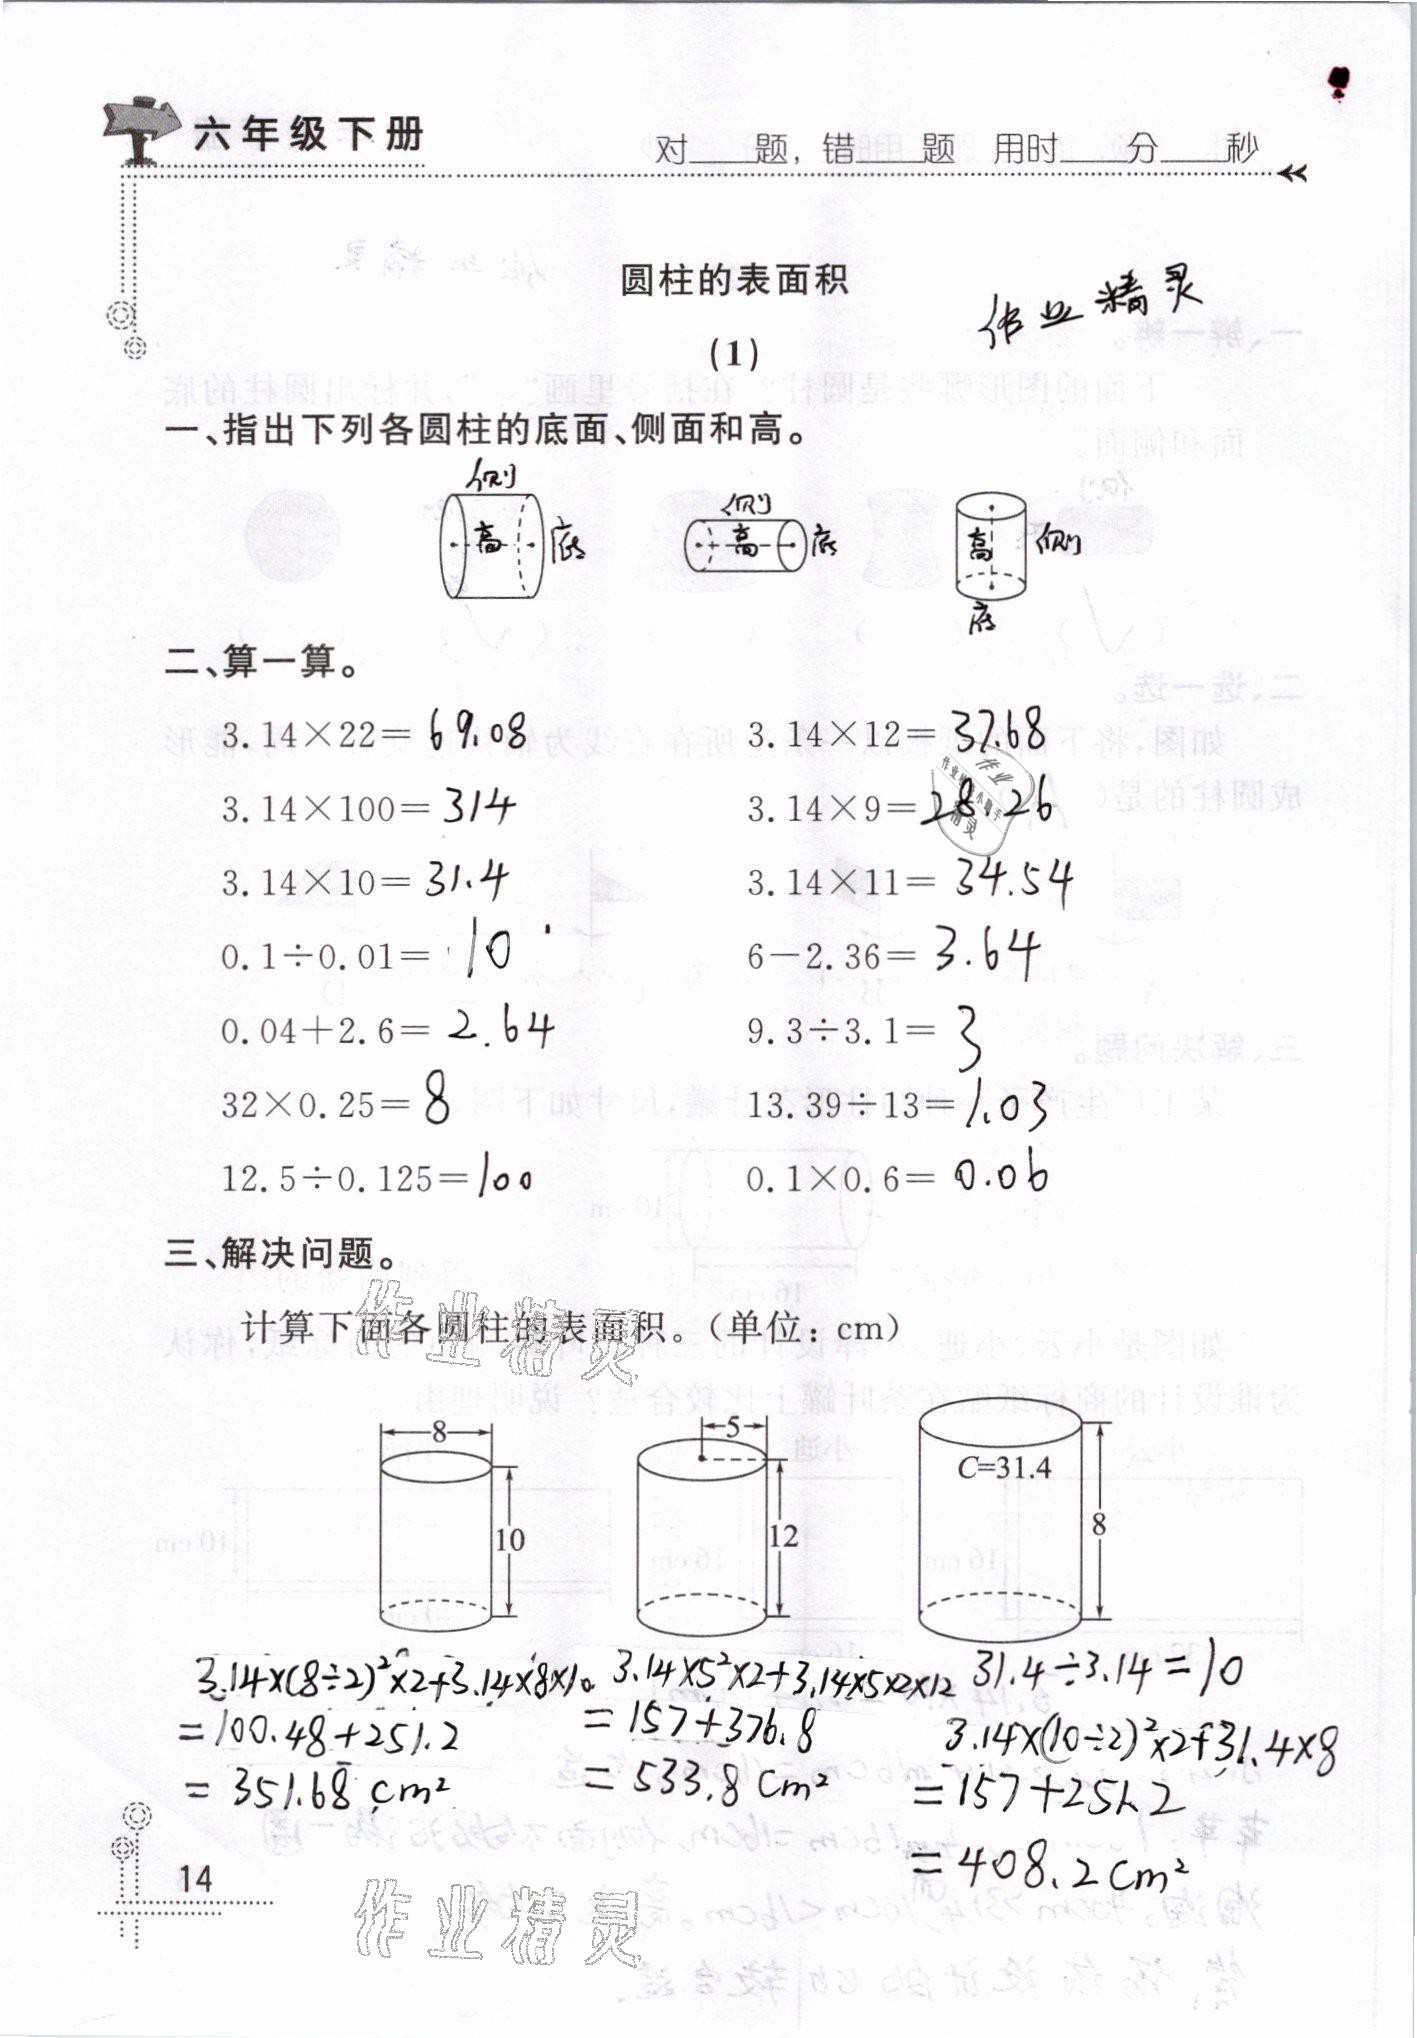 六年级下册
对____题，错____题 用时____分____秒
圆柱的表面积
作业精灵
(1)
一、指出下列各圆柱的底面、侧面和高。
侧 侧
高 底 高 底 高 侧
底
二、算一算。
3.14×22=69.08 3.14×12=37.68
3.14×100=314 3.14×9=28.26
3.14×10=31.4 3.14×11=34.54
0.1÷0.01=10 6－2.36=3.64
0.04+2.6=2.64 9.3÷3.1=3
32×0.25=8 13.39÷13=1.03
12.5÷0.125=100 0.1×0.6=0.06
三、解决问题。
计算下面各圆柱的表面积。(单位：cm)
作业精灵
8 5
C=31.4
10 12 8
3.14×(8÷2)²×2+3.14×8×10 3.14×5²×2+3.14×5×2×12 31.4÷3.14=10
=100.48+251.2 =157+376.8 3.14×(10÷2)²×2+31.4×8
=351.68cm² =533.8cm² =157+251.2
=408.2cm²
14
作业精灵